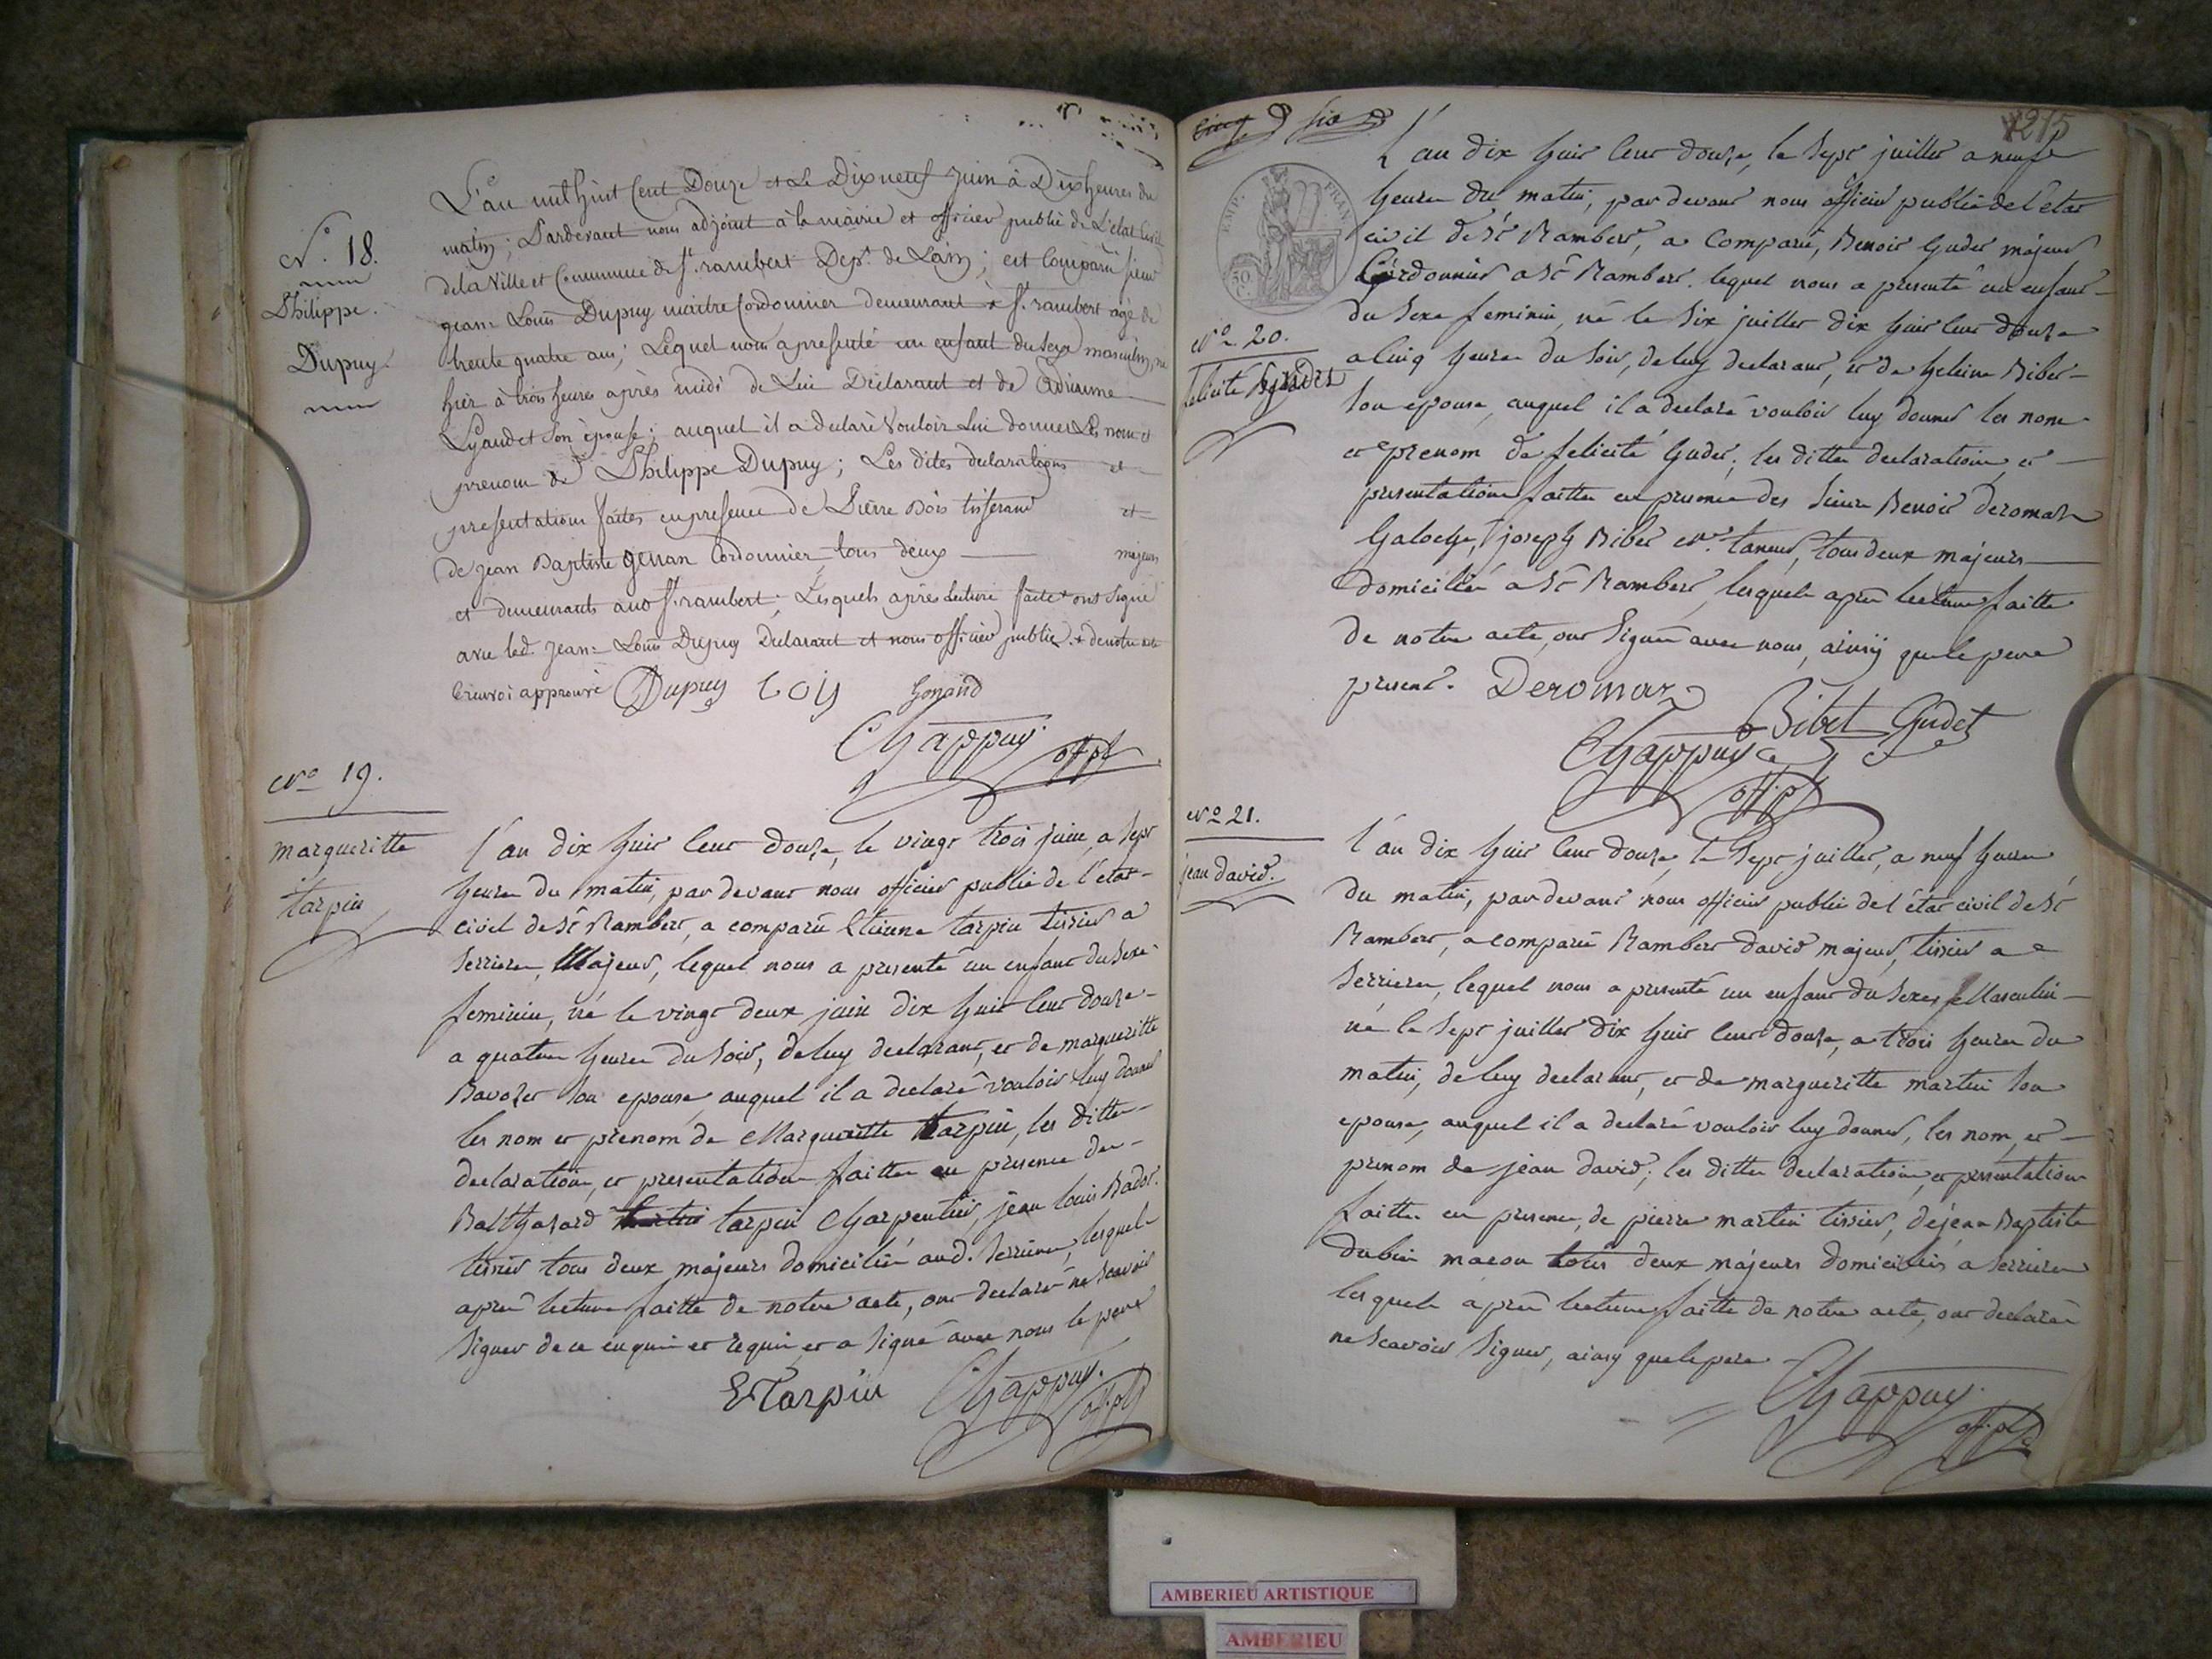 N.° 18.
Philippe.
Dupuy.
L'an mil huit Cent Douze et Le Dix neuf Juin à Dix heures du
matin; Pardevant nous adjoint à la mairie et officier public de L'état Civil
de la Ville et Commune de St. rambert Dept. de Lain; est Comparu sieur
jean= Louis Dupuy maitre Cordonnier demeurant a St. rambert agé de
trente quatre ans; Lequel nous a presenté un enfant du sexe masculin, né
hier à trois heures après midi de Lui Déclarant et de
son épouse; auquel il a declaré Vouloir Lui donner Les nom et
prenom de Philippe Dupuy; Les dites declarations et
presentations faites en presence de Pierre Bois tisserand et
de jean Baptiste Cordonnier, tous deux majeurs
et demeurants aud St. rambert; Lesquels après lecture faite + ont signé
avec led. jean= Louis Dupuy Declarant et nous officier public. + de notre acte
renvoi approuvé Dupuy bois
Chappuy off. pb
N° 19.
margueritte
tarpin
l'an dix huit cent douze, le vingt trois juin, a sept
heures du matin, par devant nous officier public de l'etat
civil de St Rambert, a comparu Etienne tarpin tissier a
Serrieres, Majeur, lequel nous a presenté un enfant du sexe
feminin, né le vingt deux juin dix huit cent douze
a quatre heures du soir, de luy declarant, et de margueritte
Ravozet son epouse, auquel il a declaré vouloir luy donner
les nom et prenom de Margueritte tarpin, les dittes
declaration, et presentation faittes en presence de
Balthazard tarpin Charpentier, jean louis Badot
tissier tous deux majeurs domiciliés aud. Serrieres, lesquels
aprés lecture faitte de notre acte, ont declaré ne scavoir
signer de ce enquis et requis et a signé avec nous le pere
E Tarpin Chappuy. off. pb
Cinq & six
1215
EMP. FRAN.
50 C.
N° 20.
felicité Gudet
L'an dix huit cent douze, le sept juillet a neuf
heures du matin, par devant nous officier public de l'etat
civil de St Rambert, a Comparu, Benoit Gudet majeur
Cordonnier a St Rambert. lequel nous a presenté un enfant
du sexe feminin, né le six juillet dix huit cent douze
a cinq heures du soir, de luy declarant, et de heleine Bibet
son epouse, auquel il a declaré vouloir luy donner les nom
et prenom de felicité Gudet; les dittes declaration, et
presentation faittes en presence des sieurs Benoit deromaz
Galoche, joseph Bibet taneur, tous deux majeurs
domiciliés a St Rambert, lesquels aprés lecture faitte
de notre acte, ont signé avec nous, ainsy que le pere
present. Deromaz
Bibet Gudet
Chappuy
off. pb
N° 21.
jean david.
l'an dix huit cent douze, le sept juillet, a neuf heures
du matin, par devant nous officier public de l'état civil de St
Rambert, a comparu Rambert david majeur, tissier a
Serrieres, lequel nous a presenté un enfant du sexe Masculin
né le sept juillet dix huit cent douze, a trois heures du
matin, de luy declarant, et de margueritte martin son
epouse, auquel il a declaré vouloir luy donner, les nom, et
prenom de jean david; les dittes declaration, et presentation
faittes en presence, de pierre martin tissier, de jean Baptiste
dubin macon tous deux majeurs domiciliés a Serrieres
lesquels aprés lecture faitte de notre acte, ont declaré
ne scavoir signer, ainsy que le pere
Chappuy. off. pb
AMBERIEU ARTISTIQUE
AMBERIEU